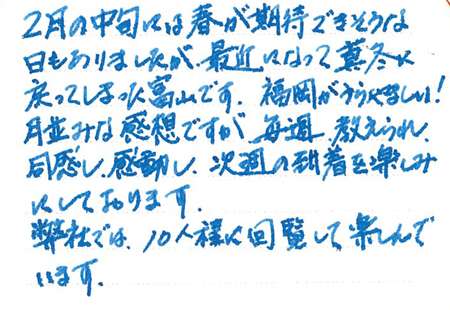 2月の中旬には春が期待できそうな
日もありましたが、最近になって真冬に
戻ってしまった富山です。福岡がうらやましい!
月並みな感想ですが、毎週、教えられ、
同感し、感動し、次週の到着を楽しみ
にしております。
弊社では、10人様に回覧して楽しんで
います。